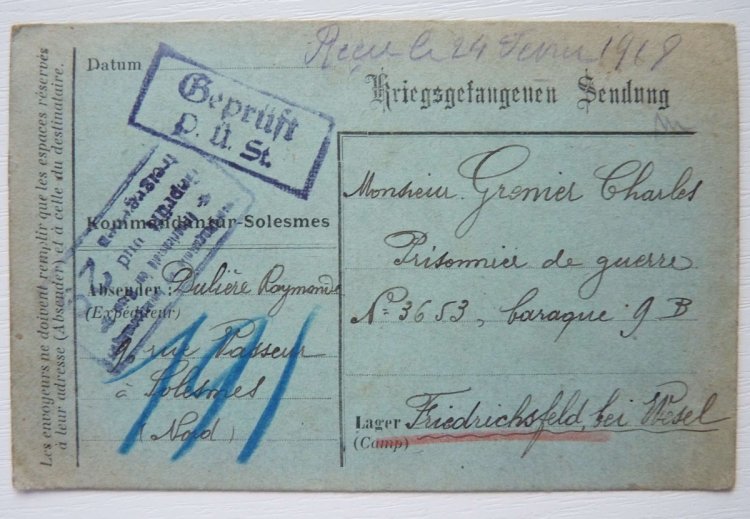 Reçu le 24 1918
Datum
Kriegsgefangenen Sendung
Geprüft
P. Ü. St.
Kommandantur-Solesmes
Geprüft und
freigegeben
Absender : Dulière Raymonde
(Expéditeur)
9, rue Vasseur
à Solesmes
(Nord)
Monsieur Grenier Charles
Prisonnier de guerre
N° 3653, baraque 9 B
Lager Friedrichsfeld, bei Wesel
(Camp)
Les envoyeurs ne doivent remplir que les espaces réservés
à leur adresse (Absender) et à celle du destinataire.